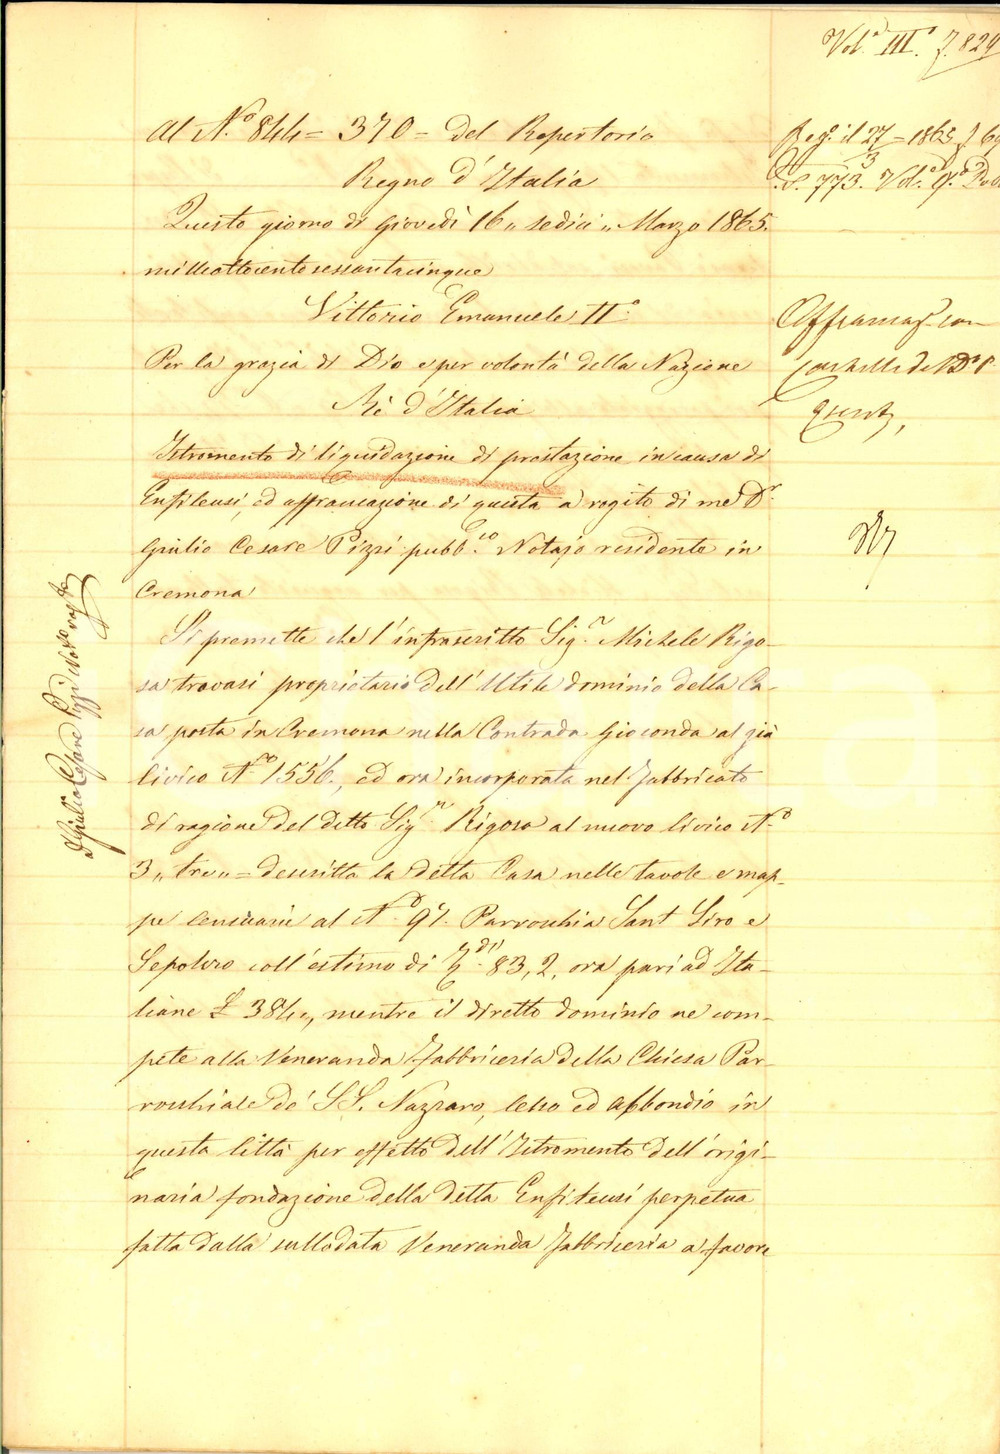 Vol.e III.o f. 829
Al N.o 844 = 370 = del Repertorio
Regno d'Italia
Reg.o il 27 - 3 - 1865 f 69
N. 773. Vol. 9.o
Questo giorno di Giovedì 16 „ sedici „ Marzo 1865.
milleottocentosessantacinque
Vittorio Emanuele II.o
Per la grazia di Dio e per volontà della Nazione
Rè d'Italia
Istromento di liquidazione di prestazione in causa di
Enfiteusi, ed affrancazione di questa a rogito di me D.r
Giulio Cesare Pizzi pubb.co Notajo residente in
Cremona
Si premette che l'infrascritto Sig.r Michele Rigo-
sa trovasi proprietario dell'Utile dominio della Ca-
sa posta in Cremona nella Contrada Gioconda al già
civico N.o 1556., ed ora incorporata nel Fabbricato
di ragione del detto Sig.r Rigosa al nuovo civico N.o
3 „ tre „ = descritta la detta Casa nelle tavole e map-
pe censuarie al N.o 97. Parrochia Sant Siro e
Sepolcro coll'estimo di 83, 2, ora pari ad Ita-
liane £ 384 „, mentre il diretto dominio ne com-
pete alla Veneranda Fabbriceria della Chiesa Par-
rochiale de' S.S. Nazzaro, Celso ed Abbondio in
questa Città per effetto dell'Istromento dell'origi-
naria fondazione della detta Enfiteusi perpetua
fatta dalla sullodata Veneranda Fabbriceria a favore
D.r Giulio Cesare Pizzi